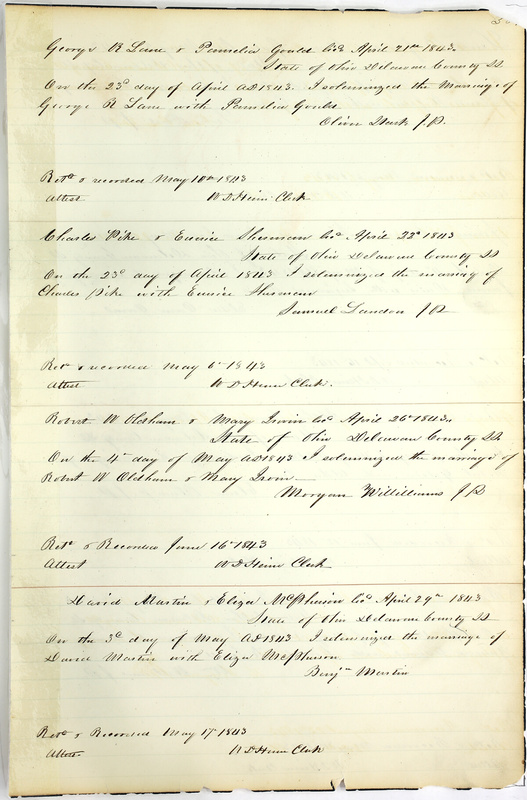 George R Lane & Pamelia Gould Lic April 21st 1843.
State of Ohio Delaware County SS
On the 23d day of April AD 1843. I solemnized the Marriage of
George R Lane with Pamelia Gould
Oliver Stark J.P.
Retd & recorded May 10th 1843
Attest
Clerk
Charles Pike & Eunice Sherman Lic April 22d 1843
State of Ohio Delaware County SS
On the 23d day of April 1843 I solemnized the marriag of
Charles Pike with Eunice Sherman
Samuel Landon J P.
Retd & recorded May 6th 1843
Attest
Clerk.
Robert W Oldham & Mary Irwin Lic April 26th 1843.
State of Ohio Delaware County SS.
On the 4th day of May AD 1843 I solemnized the marriage of
Robert W Oldham & Mary Irwin
Morgan Willilliams J P
Retd & Recorded June 16th 1843
Attest
Clerk
David Martin & Eliza McPherson Lic April 29th 1843
State of Ohio Delaware County SS
On the 3d day of May AD 1843 I solemnized the marriage of
David Martin with Eliza McPherson
Benjn Martin
Retd & Recorded May 17th 1843
Attest
Clerk